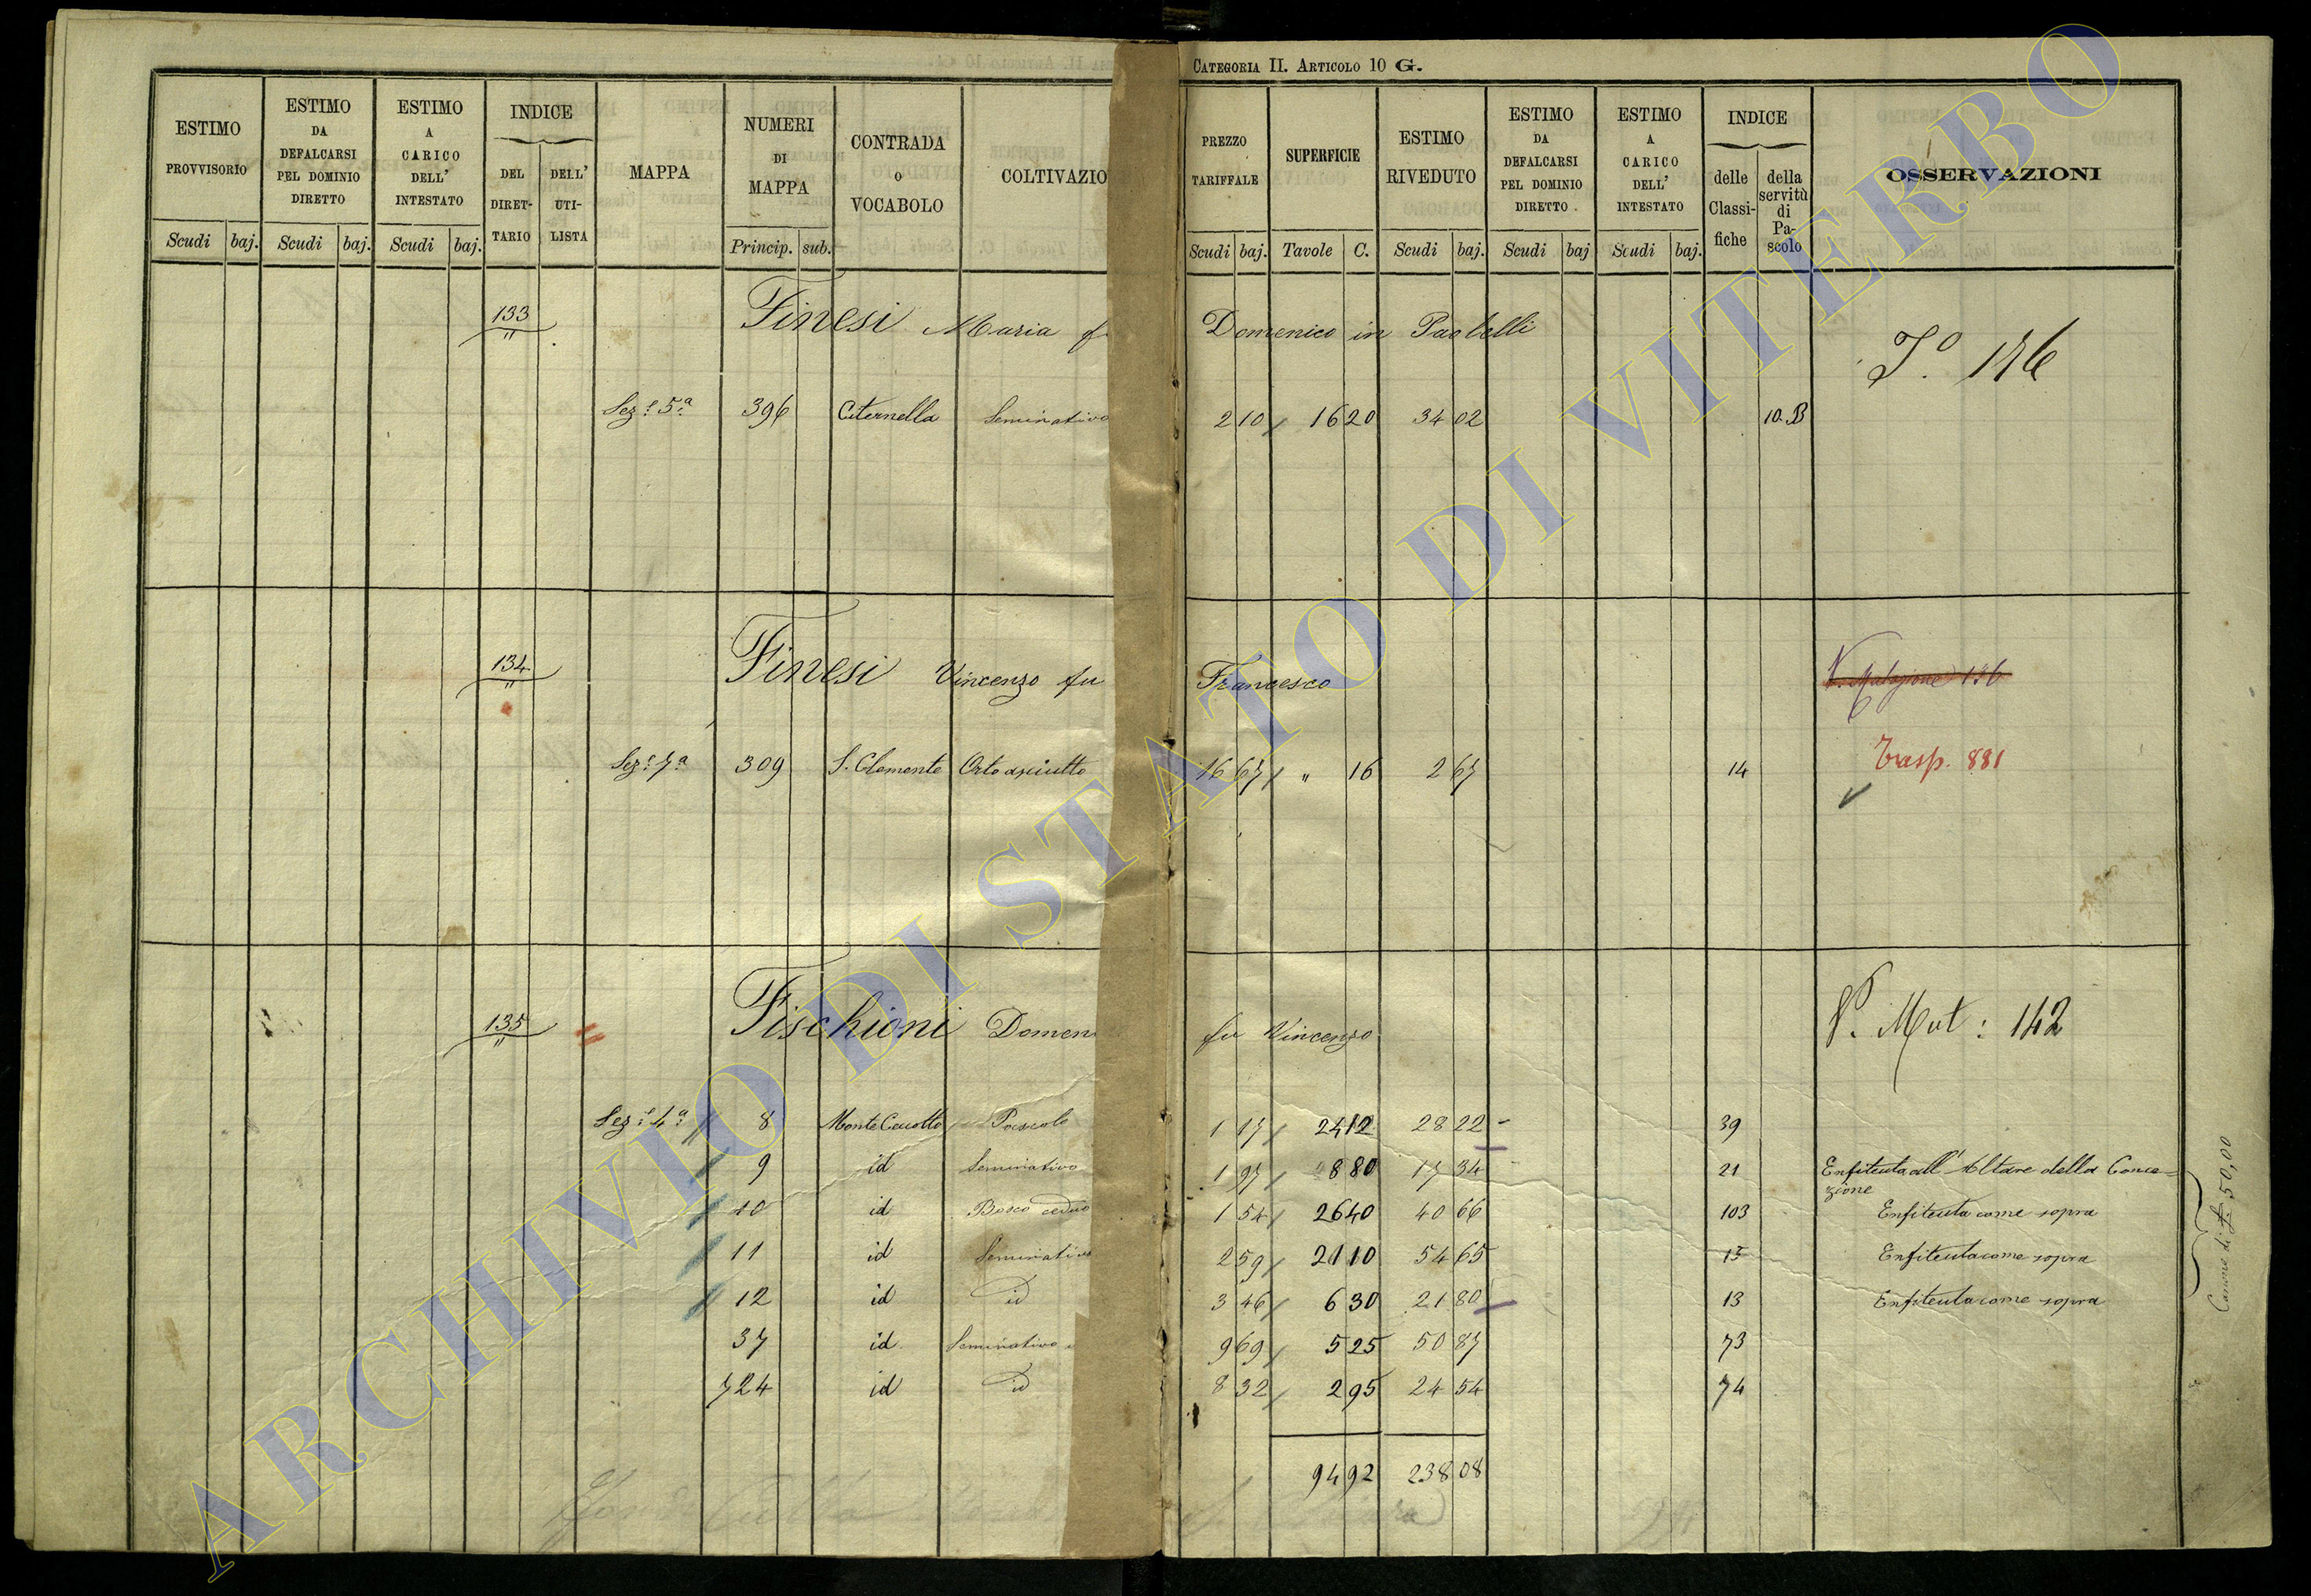 CATEGORIA II. ARTICOLO 10 G.
ESTIMO PROVVISORIO
ESTIMO DA DEFALCARSI PEL DOMINIO DIRETTO
ESTIMO A CARICO DELL' INTESTATO
INDICE
DEL DIRET-TARIO
DELL' UTI-LISTA
MAPPA
NUMERI DI MAPPA
CONTRADA O VOCABOLO
COLTIVAZIO
PREZZO TARIFFALE
SUPERFICIE
ESTIMO RIVEDUTO
ESTIMO DA DEFALCARSI PEL DOMINIO DIRETTO
ESTIMO A CARICO DELL' INTESTATO
INDICE
delle Classi-fiche
della servitù di Pa-scolo
OSSERVAZIONI
Scudi baj. Scudi baj. Scudi baj. Princip. sub.
Scudi baj. Tavole C. Scudi baj. Scudi baj Scudi baj.
133 Finesi Maria Domenico in Paolelli
Sez.e 5.a 396 Citernella Seminativo 2 10 16 20 34 02 10.B
134 Finesi Vincenzo fu Francesco
V. Mutazione 136
Sez.e 7.a 309 S. Clemente Orto asciutto 16 67 " 16 2 67 14
Trasp. 881
135 Fischioni Domen fu Vincenzo V. Mut: 142
Sez.e 4.a 8 Monte Cucotto Pascolo 1 17 24 12 28 22 39
9 id Seminativo 1 97 8 80 17 34 21 Enfiteuta all'Altare della Conce=zione
10 id Bosco ceduo 1 54 26 40 40 66 103 Enfiteuta come sopra
11 id Seminativo 2 59 21 10 54 65 15 Enfiteuta come sopra
12 id id 3 46 6 30 21 80 13 Enfiteuta come sopra
37 id Seminativo 9 69 5 25 50 87 73
724 id id 8 32 2 95 24 54 74
94 92 238 08
Canone di £ 50,00
ARCHIVIO DI STATO DI VITERBO